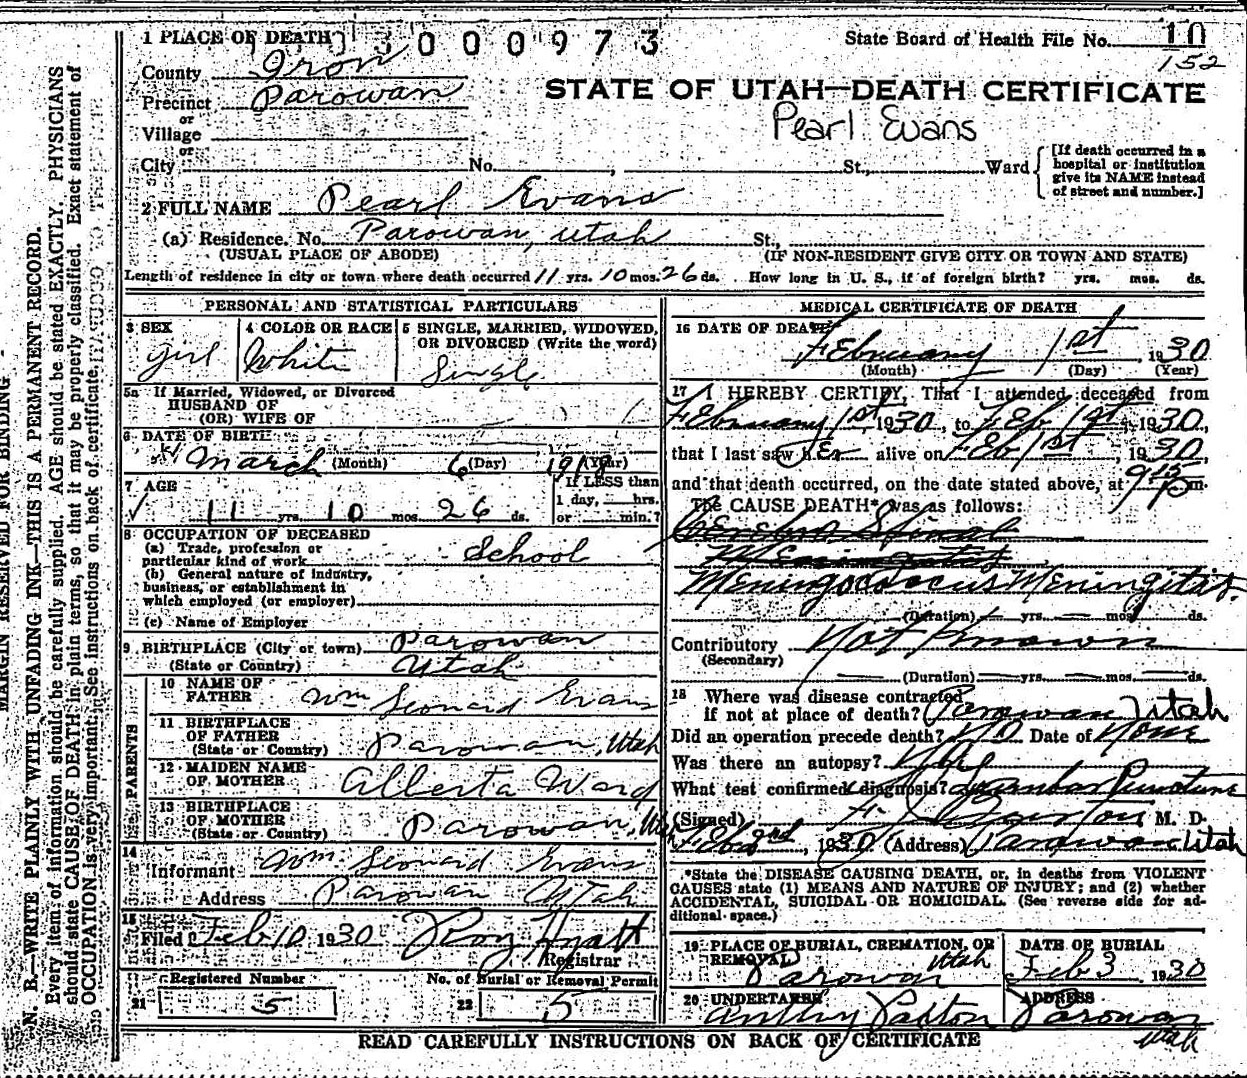 1 PLACE OF DEATH 3 0 0 0 9 7 3
State Board of Health File No. 10
152
County Iron
Precinct Parowan
or
Village
or
City No. , St., Ward
[If death occurred in a hospital or institution give its NAME instead of street and number.]
STATE OF UTAH—DEATH CERTIFICATE
Pearl Evans
2 FULL NAME Pearl Evans
(a) Residence. No. Parowan, Utah St.,
(USUAL PLACE OF ABODE) (IF NON-RESIDENT GIVE CITY OR TOWN AND STATE)
Length of residence in city or town where death occurred 11 yrs. 10 mos. 26 ds. How long in U. S., if of foreign birth? yrs. mos. ds.
PERSONAL AND STATISTICAL PARTICULARS
3 SEX
girl
4 COLOR OR RACE
White
5 SINGLE, MARRIED, WIDOWED, OR DIVORCED (Write the word)
Single
5a If Married, Widowed, or Divorced
HUSBAND OF
(OR) WIFE OF
6 DATE OF BIRTH
March (Month) 6 (Day) 1918 (Year)
7 AGE
11 yrs. 10 mos. 26 ds.
If LESS than
1 day, hrs.
or min.?
8 OCCUPATION OF DECEASED
(a) Trade, profession or
particular kind of work School
(b) General nature of industry,
business, or establishment in
which employed (or employer)
(c) Name of Employer
9 BIRTHPLACE (City or town) Parowan
(State or Country) Utah
PARENTS
10 NAME OF
FATHER Wm Leonard Evans
11 BIRTHPLACE
OF FATHER
(State or Country) Parowan, Utah
12 MAIDEN NAME
OF MOTHER Alberta Ward
13 BIRTHPLACE
OF MOTHER
(State or Country) Parowan,
14
Informant Wm. Leonard Evans
Address Parowan Utah
15
Filed Feb 10 1930 J Roy Hyatt
Registrar
Registered Number
21 5
No. of Burial or Removal Permit
22 5
MEDICAL CERTIFICATE OF DEATH
16 DATE OF DEATH
February 1st , 1930
(Month) (Day) (Year)
17 I HEREBY CERTIFY, That I attended deceased from
February 1st, 1930, to Feb 1st, 1930,
that I last saw her alive on Feb 1st, 1930,
and that death occurred, on the date stated above, at 9 15 m.
The CAUSE DEATH* was as follows:
Cerebro Spinal
Meningitis
Meningococcus Meningitis.
(Duration) yrs. mos. ds.
Contributory Not Known
(Secondary)
(Duration) yrs. mos. ds.
18 Where was disease contracted
if not at place of death? Parowan Utah
Did an operation precede death? NO Date of None
Was there an autopsy? No
What test confirmed diagnosis? Lumbar Puncture
(Signed) M. D.
Feb 2nd, 1930 (Address) Parowan Utah
*State the DISEASE CAUSING DEATH, or, in deaths from VIOLENT
CAUSES state (1) MEANS AND NATURE OF INJURY; and (2) whether
ACCIDENTAL, SUICIDAL OR HOMICIDAL. (See reverse side for ad-
ditional space.)
19 PLACE OF BURIAL, CREMATION, OR
REMOVAL Utah
Parowan
DATE OF BURIAL
Feb 3 1930
20 UNDERTAKER
Dalton
ADDRESS
Parowan
Utah
READ CAREFULLY INSTRUCTIONS ON BACK OF CERTIFICATE
MARGIN RESERVED FOR BINDING
N. B.—WRITE PLAINLY WITH UNFADING INK—THIS IS A PERMANENT RECORD.
Every item of information should be carefully supplied. AGE should be stated EXACTLY. PHYSICIANS
should state CAUSE OF DEATH in plain terms, so that it may be properly classified. Exact statement of
OCCUPATION is very important. See instructions on back of certificate.